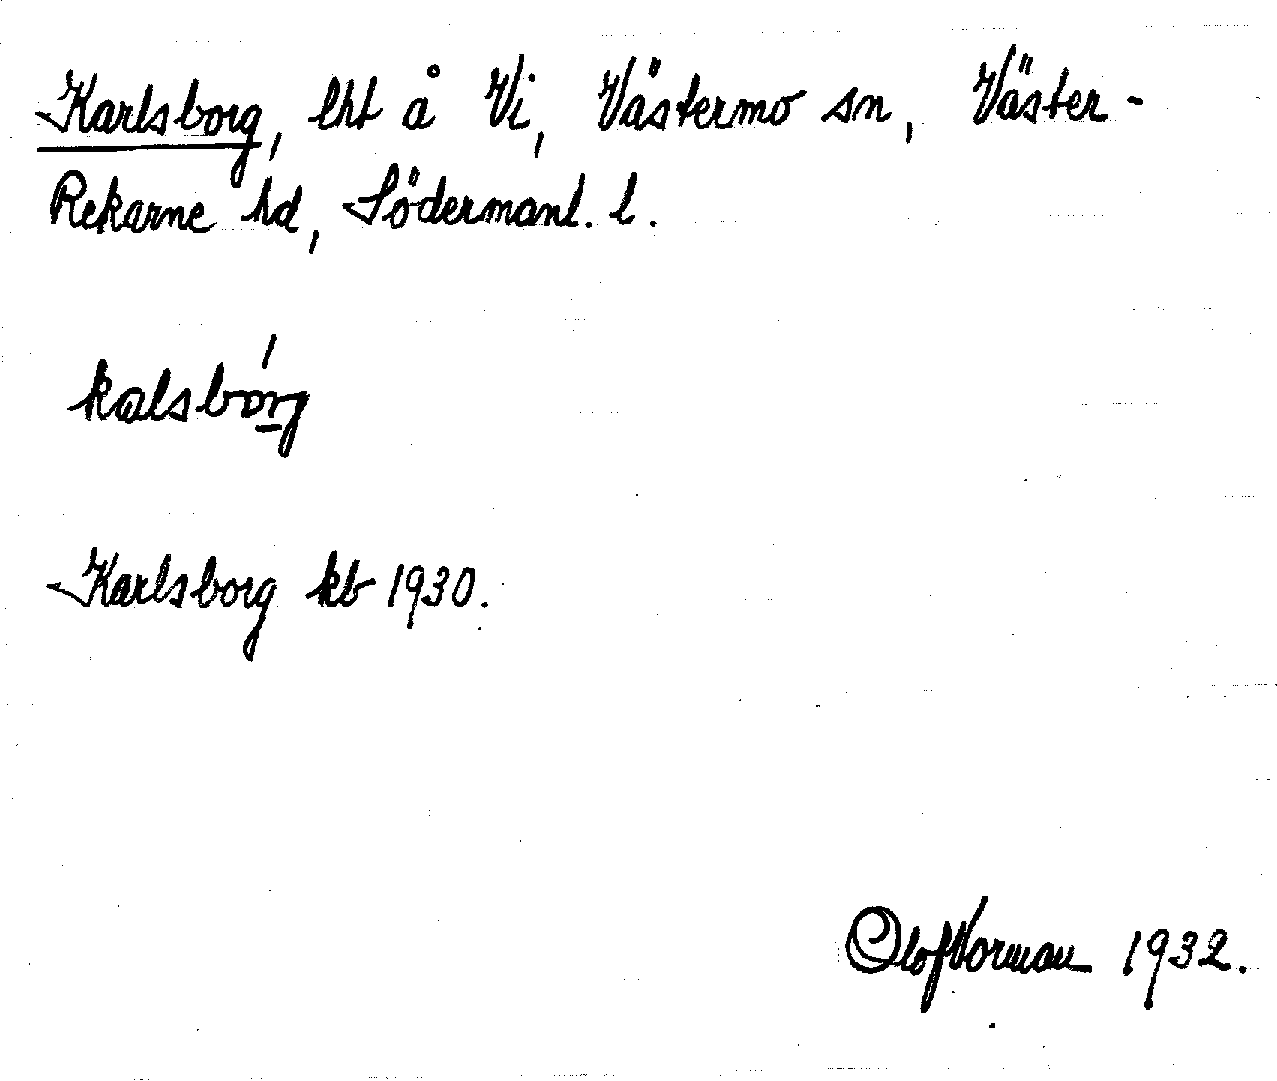 Karlsborg, lht å Vi, Västermo sn, Väster-
Rekarne hd, Södermanl. l.
kalsbórg
Karlsborg kb 1930.
Olof Norman 1932.